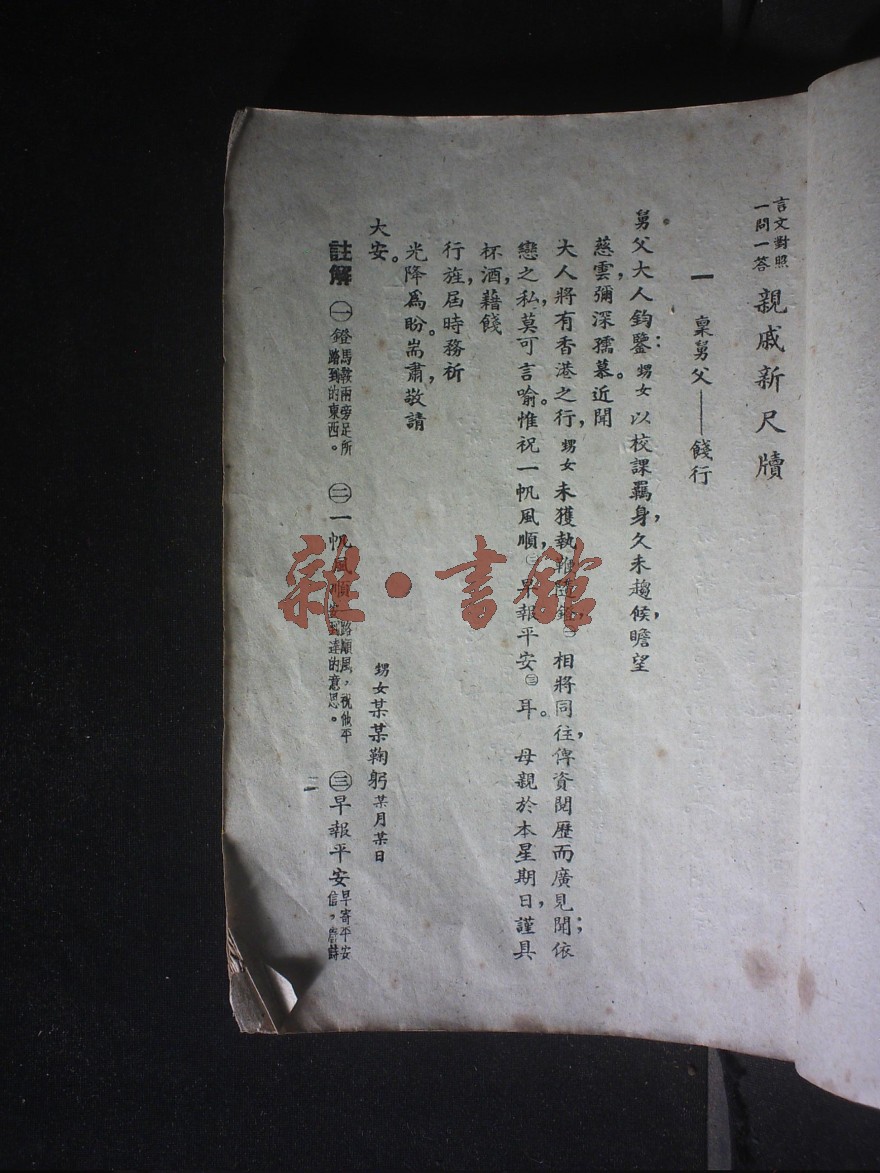 言文對照
一問一答
親戚新尺牘
一 稟舅父——餞行
舅父大人鈞鑒：甥女以校課羈身，久未趨候，瞻望
慈雲，彌深孺慕。近聞
大人將有香港之行，甥女未獲執鞭隨鐙㊀，相將同往，俾資閱歷而廣見聞；依
戀之私，莫可言喻。惟祝一帆風順㊁，早報平安㊂耳。母親於本星期日，謹具
杯酒，藉餞
行旌，屆時務祈
光降爲盼。耑肅，敬請
大安。
甥女某某鞠躬某月某日
註解 ㊀鐙馬鞍兩旁足所踏到的東西。 ㊁一帆風順一路順風，祝他平安到達的意思。 ㊂早報平安早寄平安信，唐詩
二
雜·書館